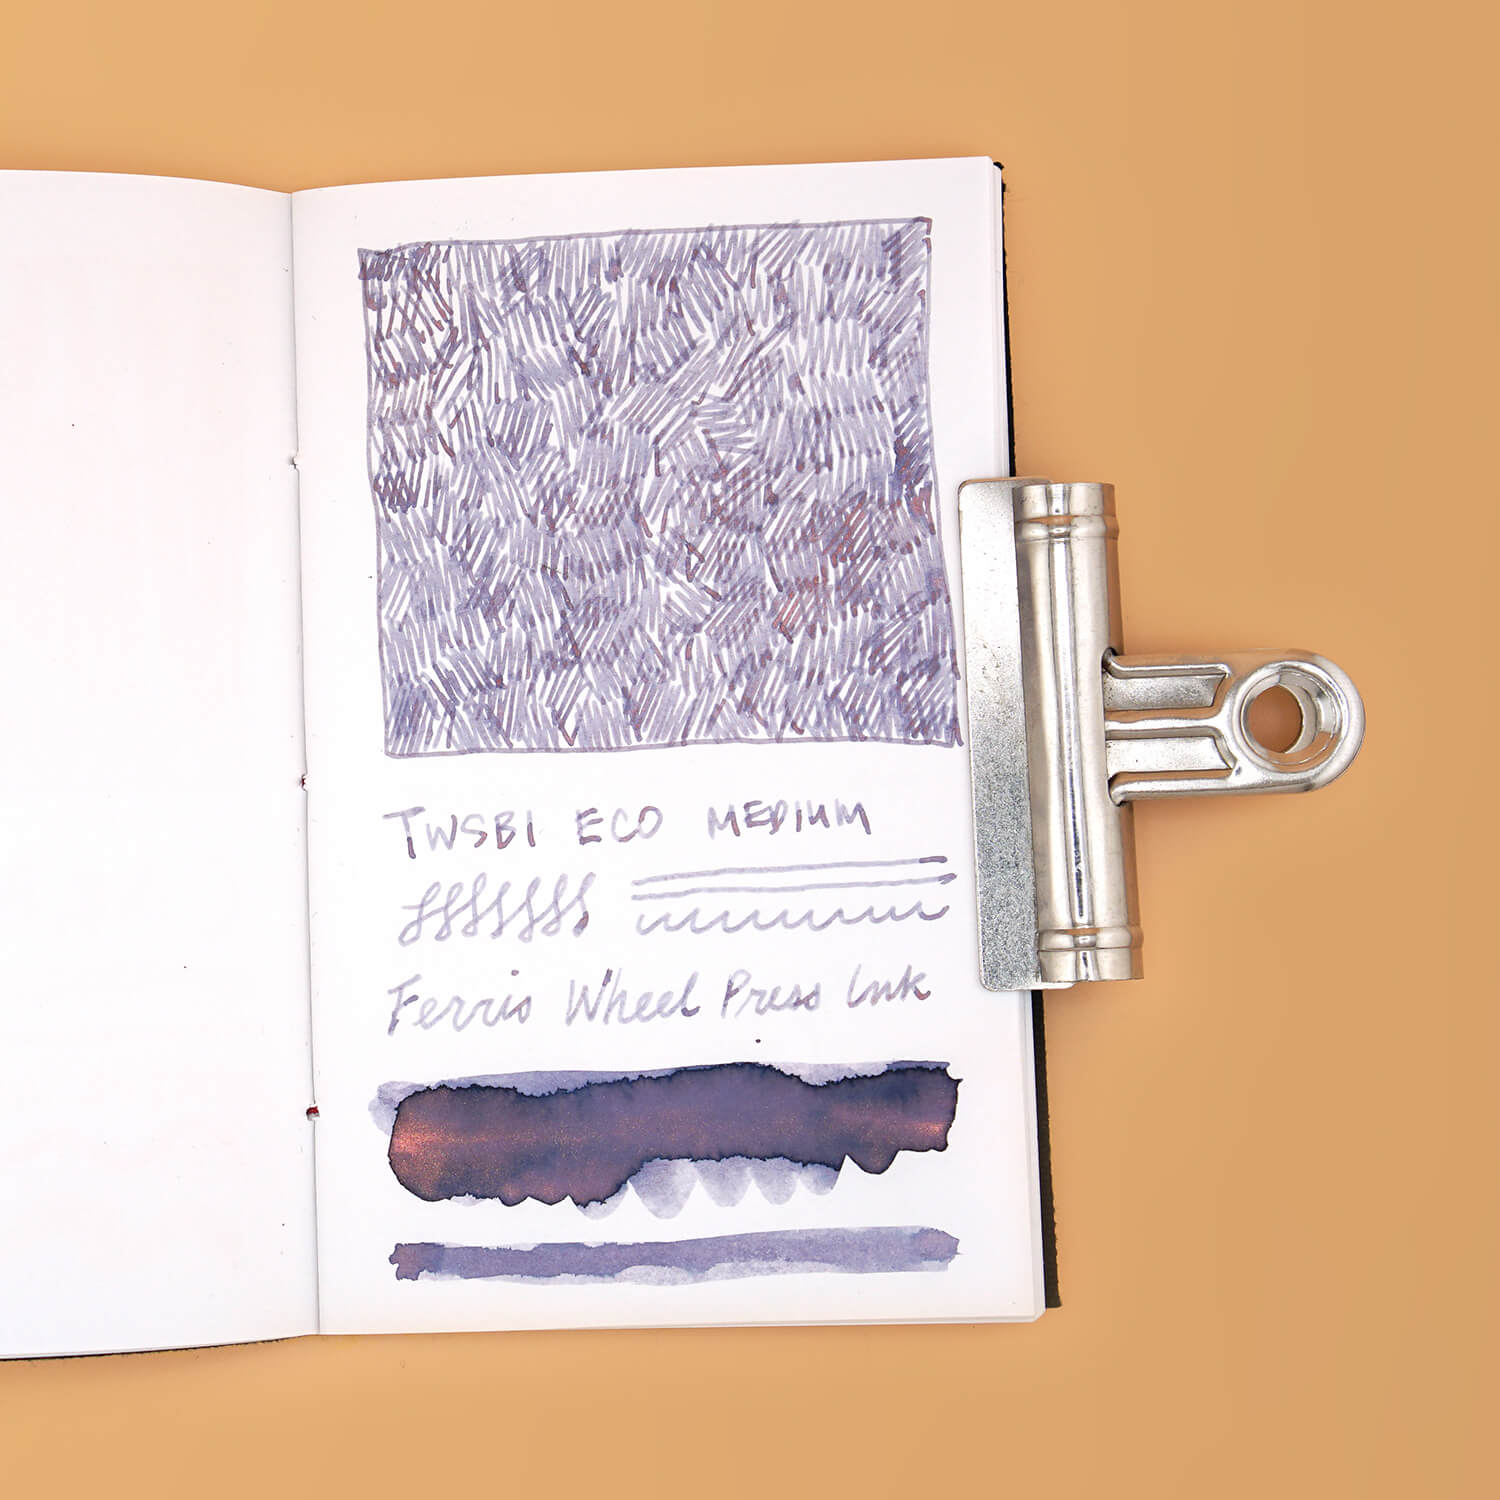 TWSBI ECO MEDIUM
Ferris Wheel Press Ink